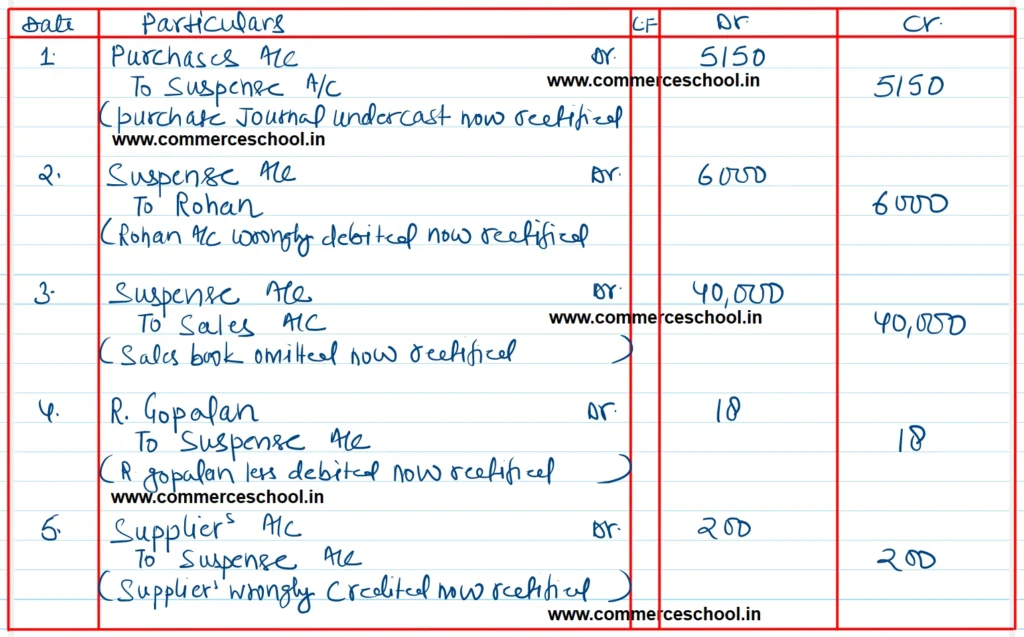 Date Particulars L.F Dr. Cr.
1. Purchases A/c Dr. 5150
To Suspense A/C 5150
www.commerceschool.in
(purchase Journal undercast now rectified
www.commerceschool.in
2. Suspense A/c Dr. 6000
To Rohan 6000
(Rohan A/c wrongly debited now rectified
3. Suspense A/c Dr. 40,000
To Sales A/C 40,000
www.commerceschool.in
(Sales book omitted now rectified )
4. R. Gopalan Dr. 18
To Suspense A/c 18
(R gopalan less debited now rectified )
www.commerceschool.in
5. Supplier's A/C Dr. 200
To Suspense A/c 200
(Supplier's wrongly Credited now rectified )
www.commerceschool.in